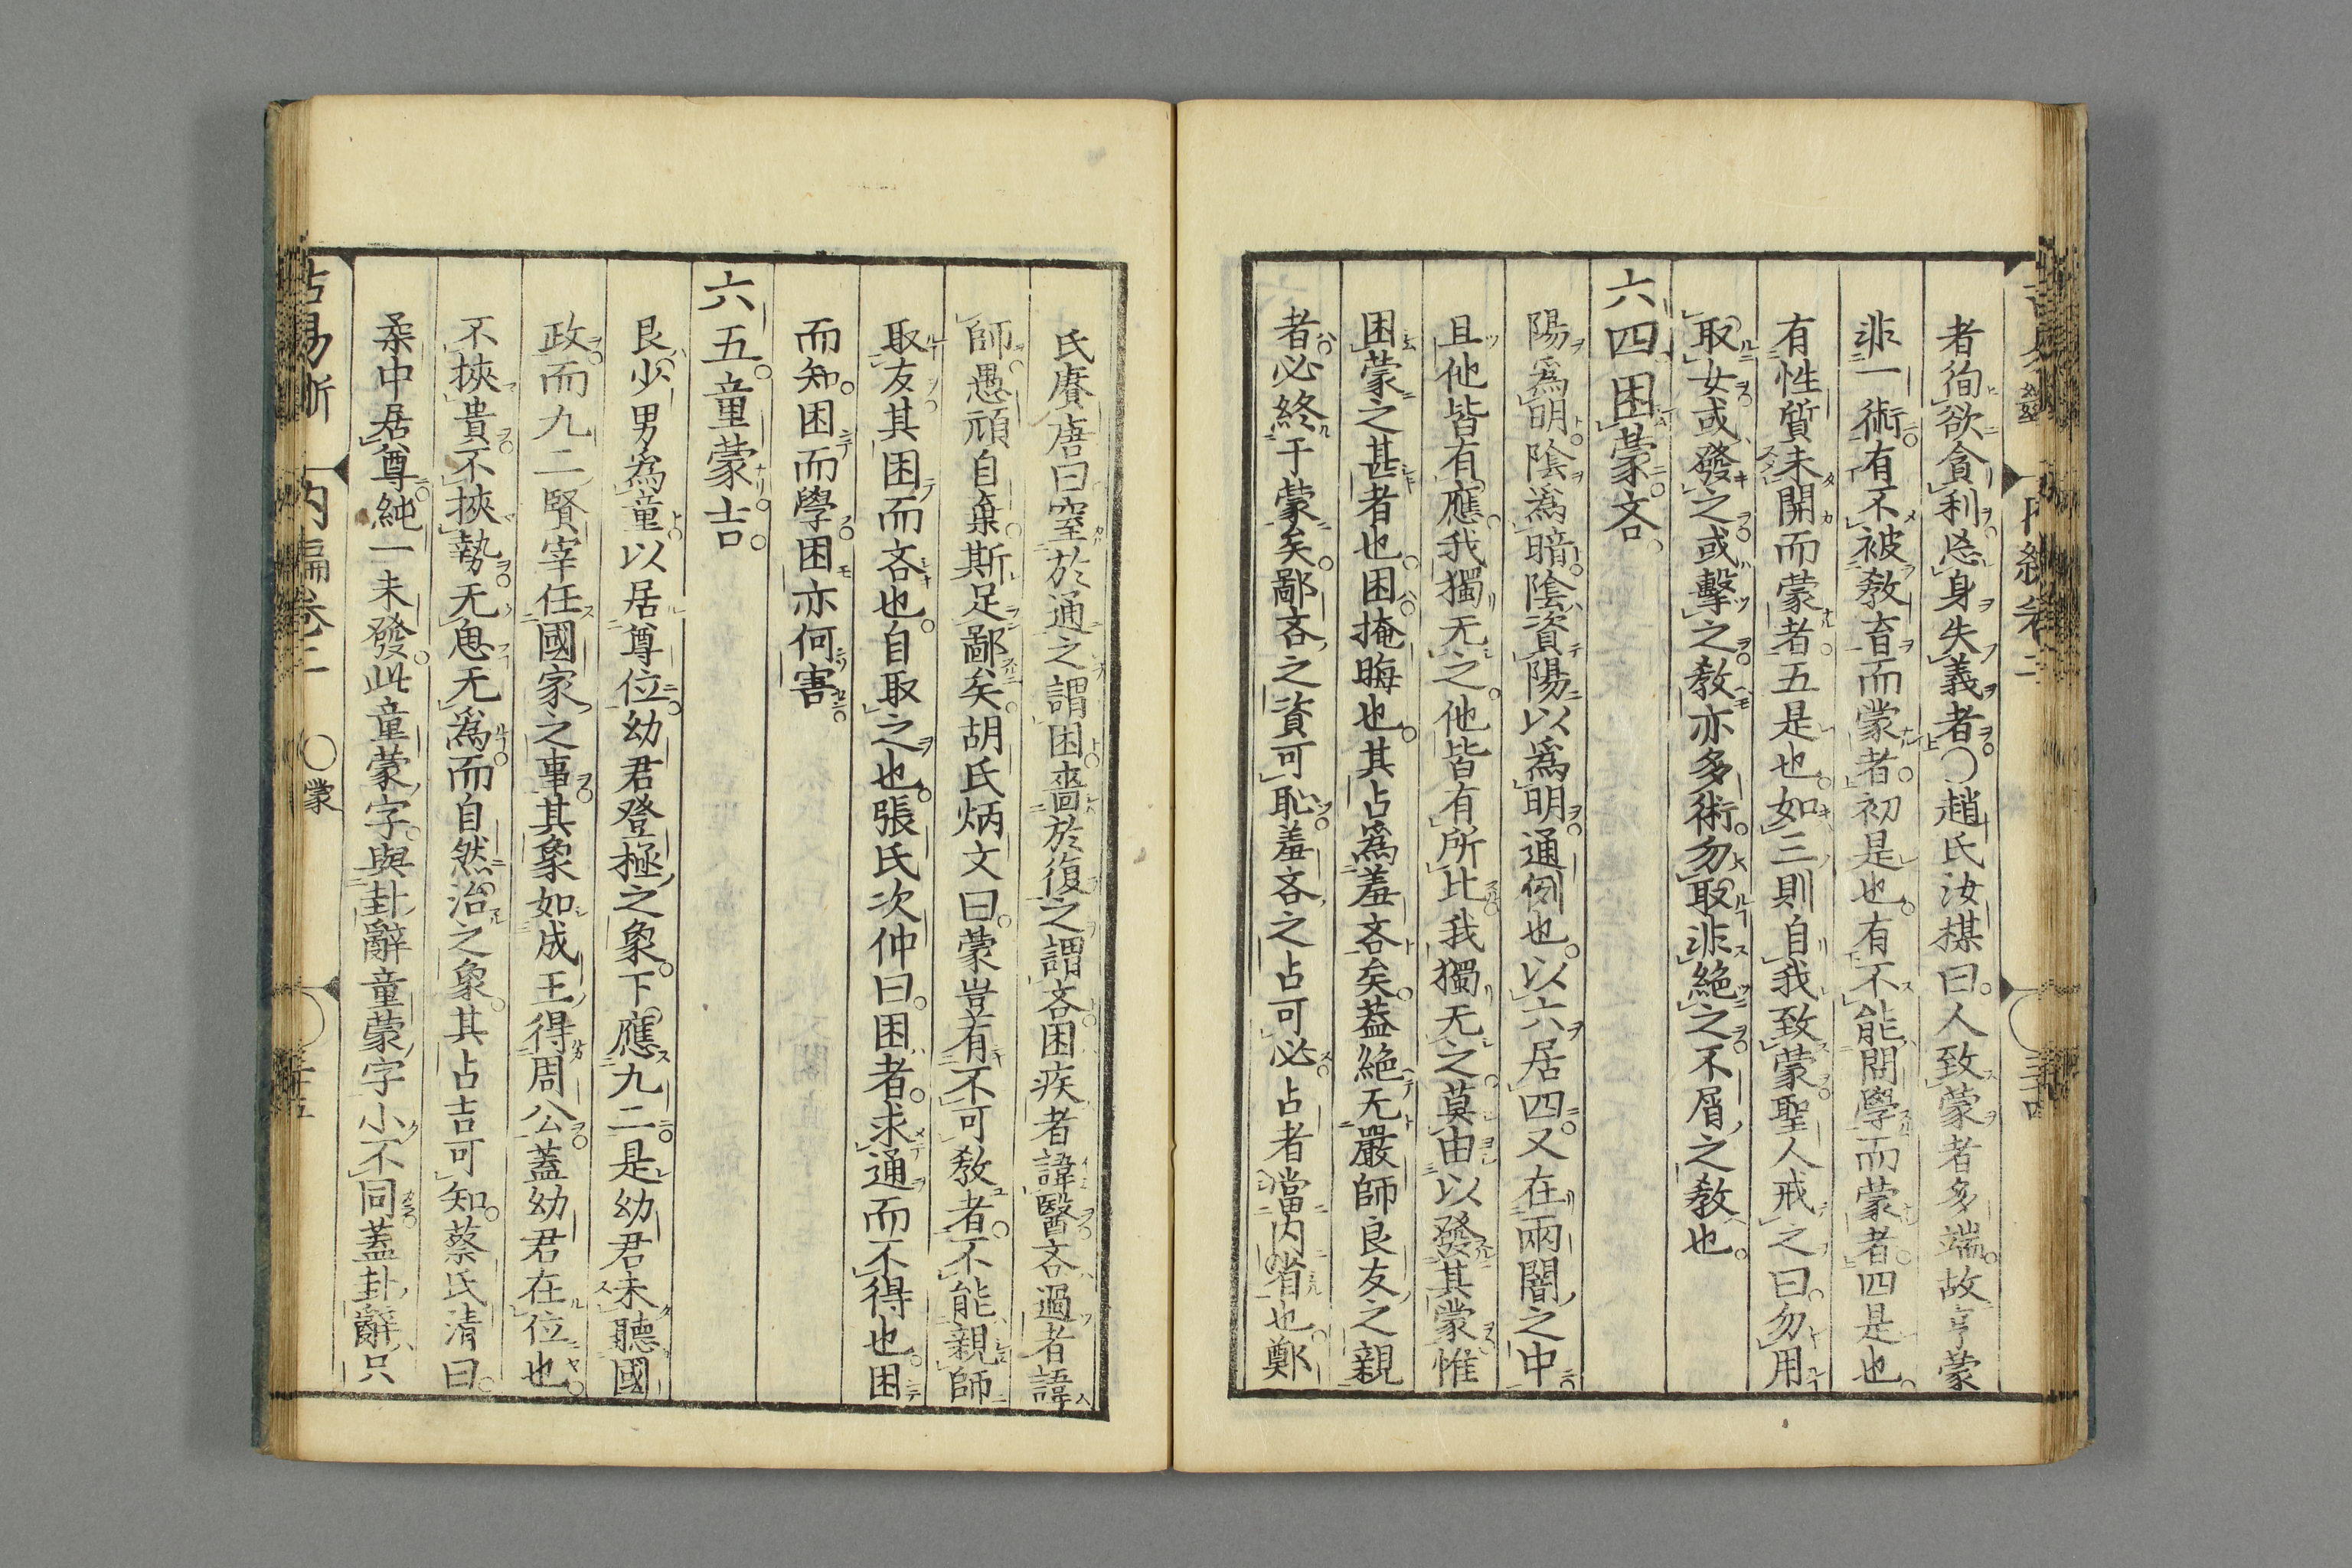 者徇欲貪利忘身失義者○趙氏汝楳曰人致蒙者多端故亨蒙
非一術有不被教育而蒙者初是也有不能問學而蒙者四是也
有性質未開而蒙者五是也如三則自我致蒙聖人戒之曰勿用
取女或發之或擊之教亦多術勿取非絶之不屑之教也
六四困蒙吝
陽爲明陰爲暗陰資陽以爲明通例也以六居四又在兩闇之中
且他皆有應我獨无之他皆有所比我獨无之莫由以發其蒙惟
困蒙之甚者也困掩晦也其占爲羞吝矣蓋絶无嚴師良友之親
者必終于蒙矣鄙吝之資可恥羞吝之占可必占者當内省也鄭
氏賡唐曰窒於通之謂困嗇於復之謂吝困疾者諱醫吝過者諱
師愚頑自棄斯足鄙矣胡氏炳文曰蒙豈有不可教者不能親師
取友其困而吝也自取之也張氏次仲曰困者求通而不得也困
而知困而學困亦何害
六五童蒙吉
艮少男為童以居尊位幼君登極之象下應九二是幼君未聽國
政而九二賢宰任國家之事其象如成王得周公蓋幼君在位也
不挾貴不挾勢无思无爲而自然治之象其占吉可知蔡氏清曰
柔中居尊純一未發此童蒙字與卦辭童蒙字小不同蓋卦辭只
古易斷 内編卷二 ○蒙